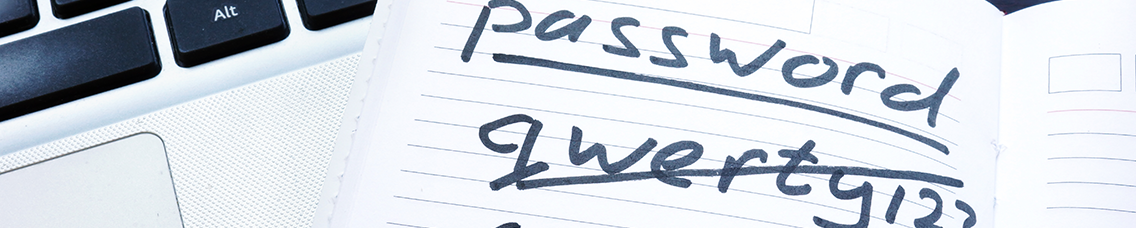 Alt
password
qwerty123